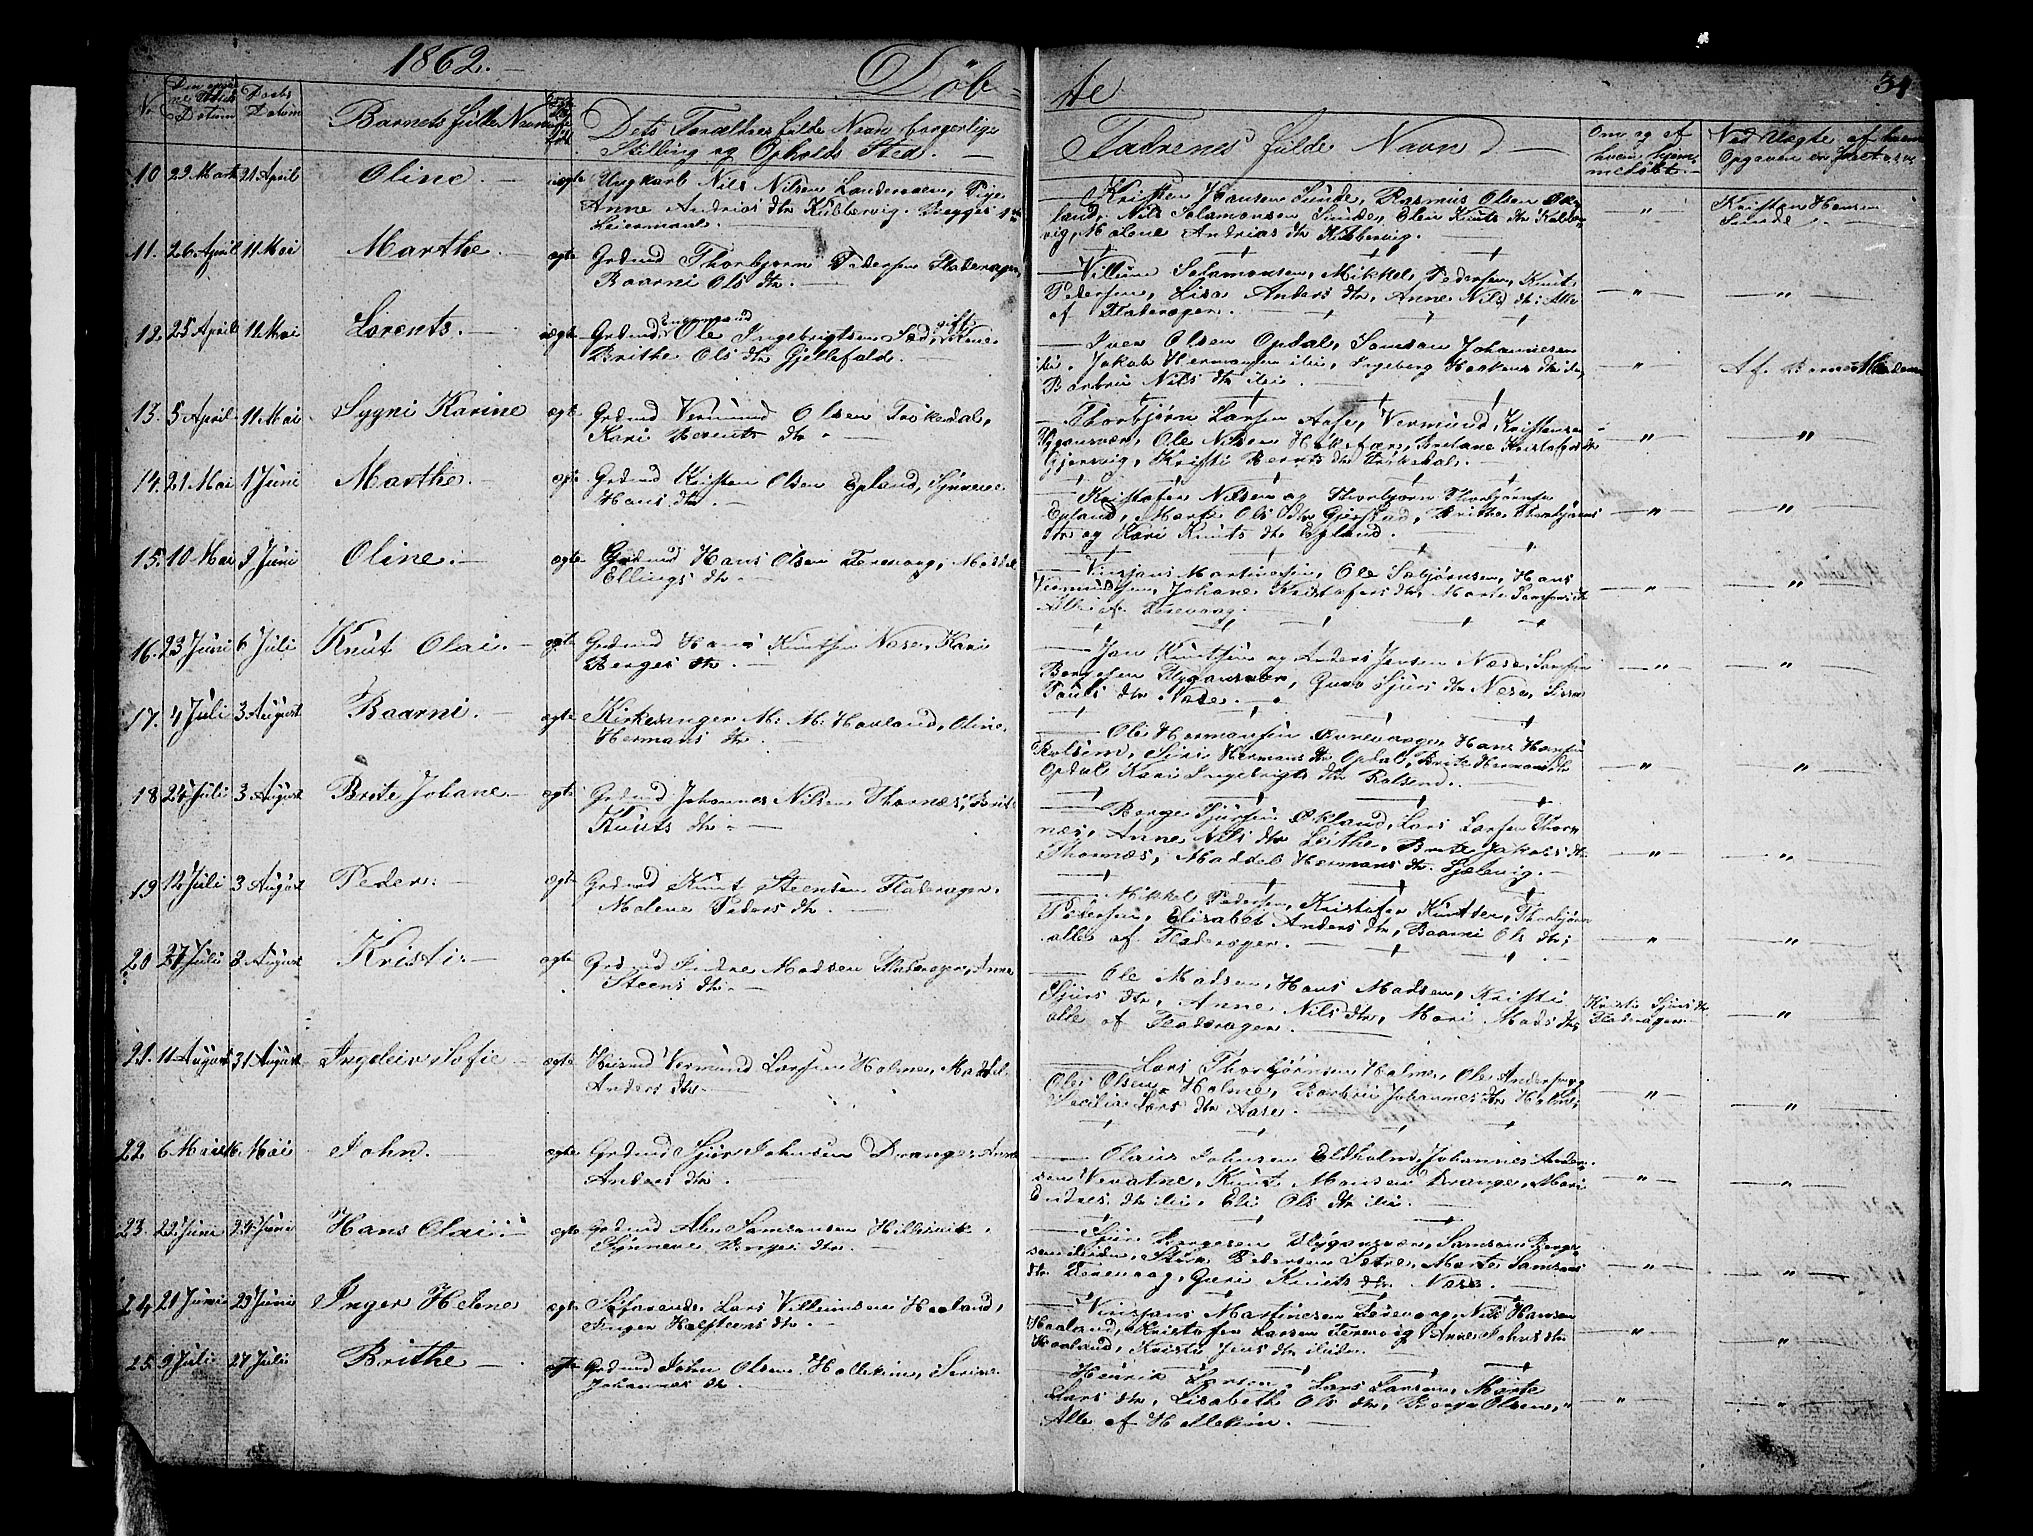 1862.
Döb-
te
34
Nr
Datum
Daabs Datum
Barnets fulde Navn
Dets Forældres fulde Navn borgerlige
Stilling og Opholds Sted.
Fadrenes fulde Navn
Om og af
hvem hjem-
medøbt.
10 29 Mart 21 April Oline uægte Ungkarl Nils Nilsen Pige
Anne Andrias dtr Kubbervig. Begges 1ste
Leiermaal.
Kristen Hansen Sunde, Rasmus Olsen
land, Nils Salamonsen Sunde, Elen Knuts dtr
vig, Malene Andrias dtr Kubbervig.
Kristen Hansen
Sunde
11. 26 April 11 Mai Marthe. ægte Grdmd Thorbjørn Pedersen Fladeragen
Baarni Ols dtr.
Villum Salamonsen, Mikkel Pedersen, Knut
Pedersen, Lisa Anders dtr, Anne Nils dtr; Alle
af Fladeragen.
12. 25 April 12 Mai Lorents. Grdmd Ole Ingebrigtsen
Brithe Ols dtr Gjellefald.
Iver Olsen Opdal, Samson Johannesen
ibi. Jakob Hermansen ibi, Ingeborg Haakens dtr ibi,
Barbru Nils dtr ibi.
Af Barnets
13. 5 April 11 Mai. Sygni Karine ægte Grdmd Vermund Olsen Trökedal,
Kari Berents dtr.
Thorbjørn Larsen Aase, Vermund Kristensen
Flygansvær, Ole Nilsen Brelane Kristofers dtr
Gjersvig, Kristi Bernts dtr
14. 21 Mai 1 Juni Marthe. ægte Grdmd Kristen Olsen Epland, Synneve
Hans dtr.
Kristofer Nilsen og Thorbjørn Thorbjørnsen
Epland, Marte Ols dtr Brithe Thorbjørns
dtr og Kari Knuts dtr Epland.
15. 10 Mai 9 Juni Oline. ægte Grdmd Hans Olsen Terevaag, Maddel
Ellings dtr.
Vinsjans Martinesen, Ole Sæbjørnsen, Hans
Vermundsen, Johane Kristofers dtr, Marte Samsons dtr
Alle af Terevaag.
16. 23 Juni 6 Juli Knut Olai. ægte Grdmd Hans Knutsen Næse, Kari
Berges dtr.
Jan Knutsen og Anders Jensen Næse, Samson
Bergesen Flygansvær, Guro Sjurs dtr Næse,
Pauls dtr Næse.
17. 4 Juli 3 August Baarni. ægte Kirkesanger M. M. Havland, Oline
Hermans dtr.
Ole Hermansen Hans Hansen
Rolsem, Siri Hermans dtr Opdal, Brite Hermans dtr
Opdal Kari Ingebrigts dtr Rolsend.
18 24 Juli 3 August Brite Johane ægte Grdmd Johannes Nilsen Thornæs, Brit
Knuts dtr.
Berge Sjursen Økland, Lars Larsen Thor-
næs, Anne Nils dtr Leithe, Brite Jakobs dtr
Thornæs, Maddel Hermans dtr Sjælevig.
19 12 Juli 3 August Peder. ægte Grdmd Knut Steensen Fladeragen.
Malene Peders dtr.
Mikkel Pedersen, Kristofer Knutsen, Thorbjørn
Pedersen, Elisabet Anders dtr, Baarni Ols dtr;
alle af Fladeragen.
20 27 Juli 3 August Kristi. ægte Grdmd Endre Madsen Fladeragen, Anne
Steens dtr.
Ole Madsen, Hans Madsen, Kristi
Sjurs dtr, Anne Nils dtr, Mari Mads dtr,
alle af Fladeragen.
Kristi Sjurs dtr
Fladeragen.
21. 11 August 31 August Ingeleiv Sofie ægte Husmd Vermund Larssen Holme, Maddel
Anders dtr.
Lars Thorbjørnsen Holme, Ole Andersen og
Ole Olsen Holme, Barbru Johannes dtr Holme,
Secilia Lars dtr Aase.
22 6 Mai 16 Mai John. ægte Grdmd Sjur Johnsen Drange, Anna
Andres dtr.
Olaus Johnsen Eldholm, Johannes Ander-
sen Vevatne, Knut Monsen Drange, Mari
Endres dtr ibi, Eli Ols dtr ibi.
23. 22 Juni 29 Juni Hans Olai. ægte Grdmd Abr Samsonsen Hillesvik,
Synneve Berges dtr.
Sjur Bergesen Flygansvær, Samson Berge-
sen ibidm, Pedersen Sætre, Marte Samsons
dtr Terevaag, Guri Knuts dtr Næse.
24 21 Juni 29 Juni Inger Helene ægte Söfarende Lars Villumsen Haaland,
Inger Halsteens dtr.
Vinsjans Martinesen Terevaag, Nils Hansen
Haaland, Kristofer Larsen Terevaag Anne Johns dtr
Haaland, Kristi Jens dtr ibidm.
25. 9 Juli 27 Juli Brithe ægte Grdmd John Olsen Hallekim, Serine
Johannes dtr
Henrik Larsen, Lars Larsen, Marte
Lars dtr, Lisabeth Ols dtr, Berge Olsen,
Alle af Hallekim.